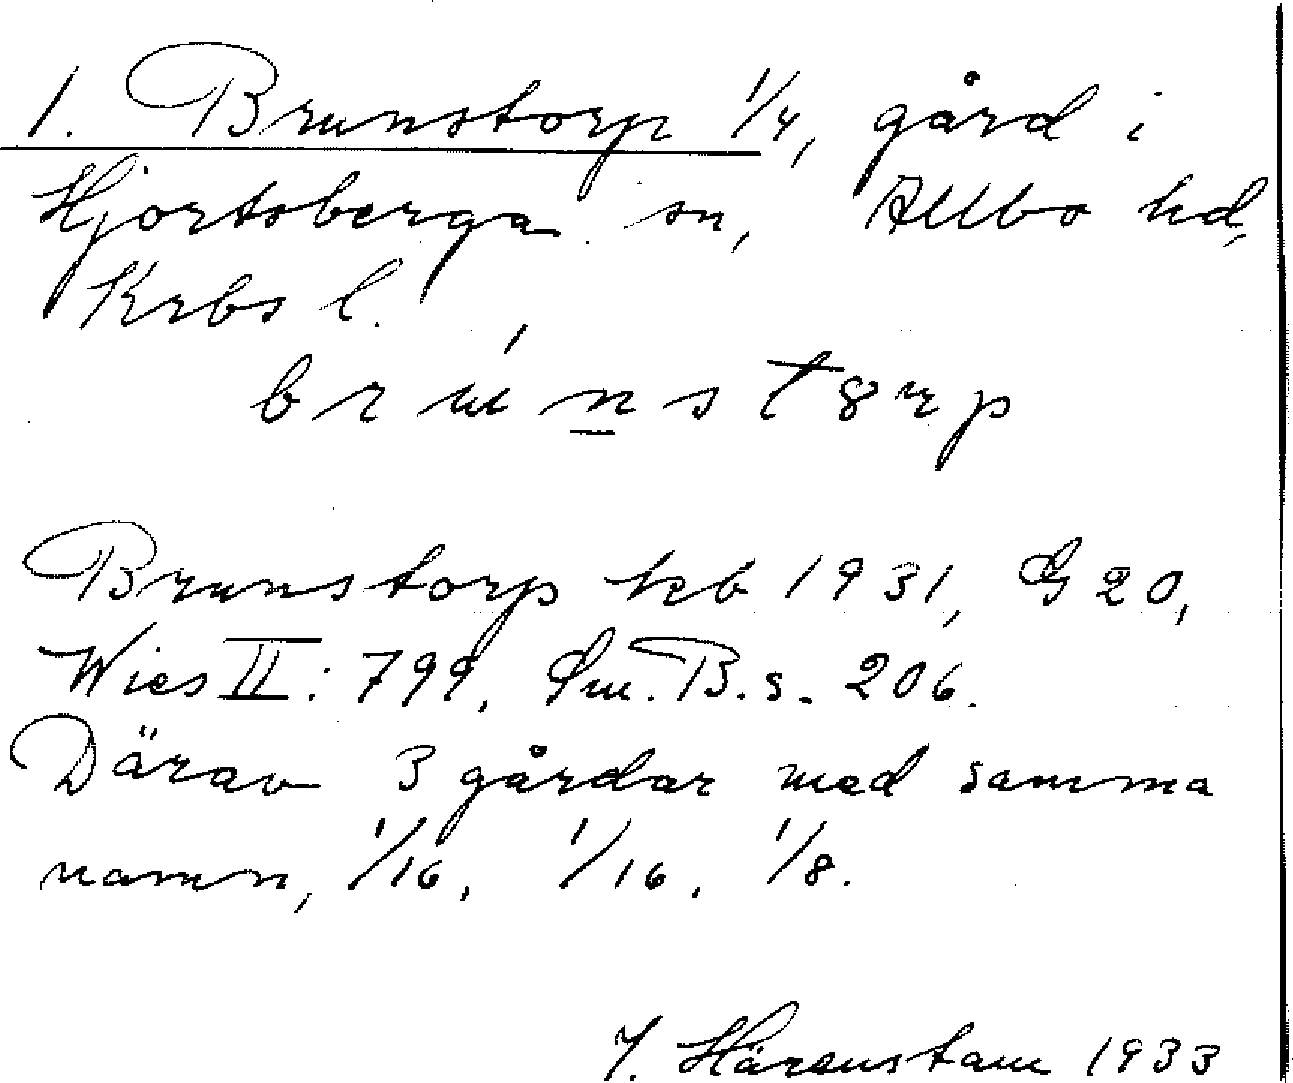 1. Brunstorp 1/4, gård i
Hjortsberga sn, Allbo hd,
Krbs l.
brúnstorp
Brunstorp kb 1931, G 20,
Wies II: 799, Sm. B. s. 206.
Därav 3 gårdar med samma
namn, 1/16, 1/16, 1/8.
Y. Härenstam 1933